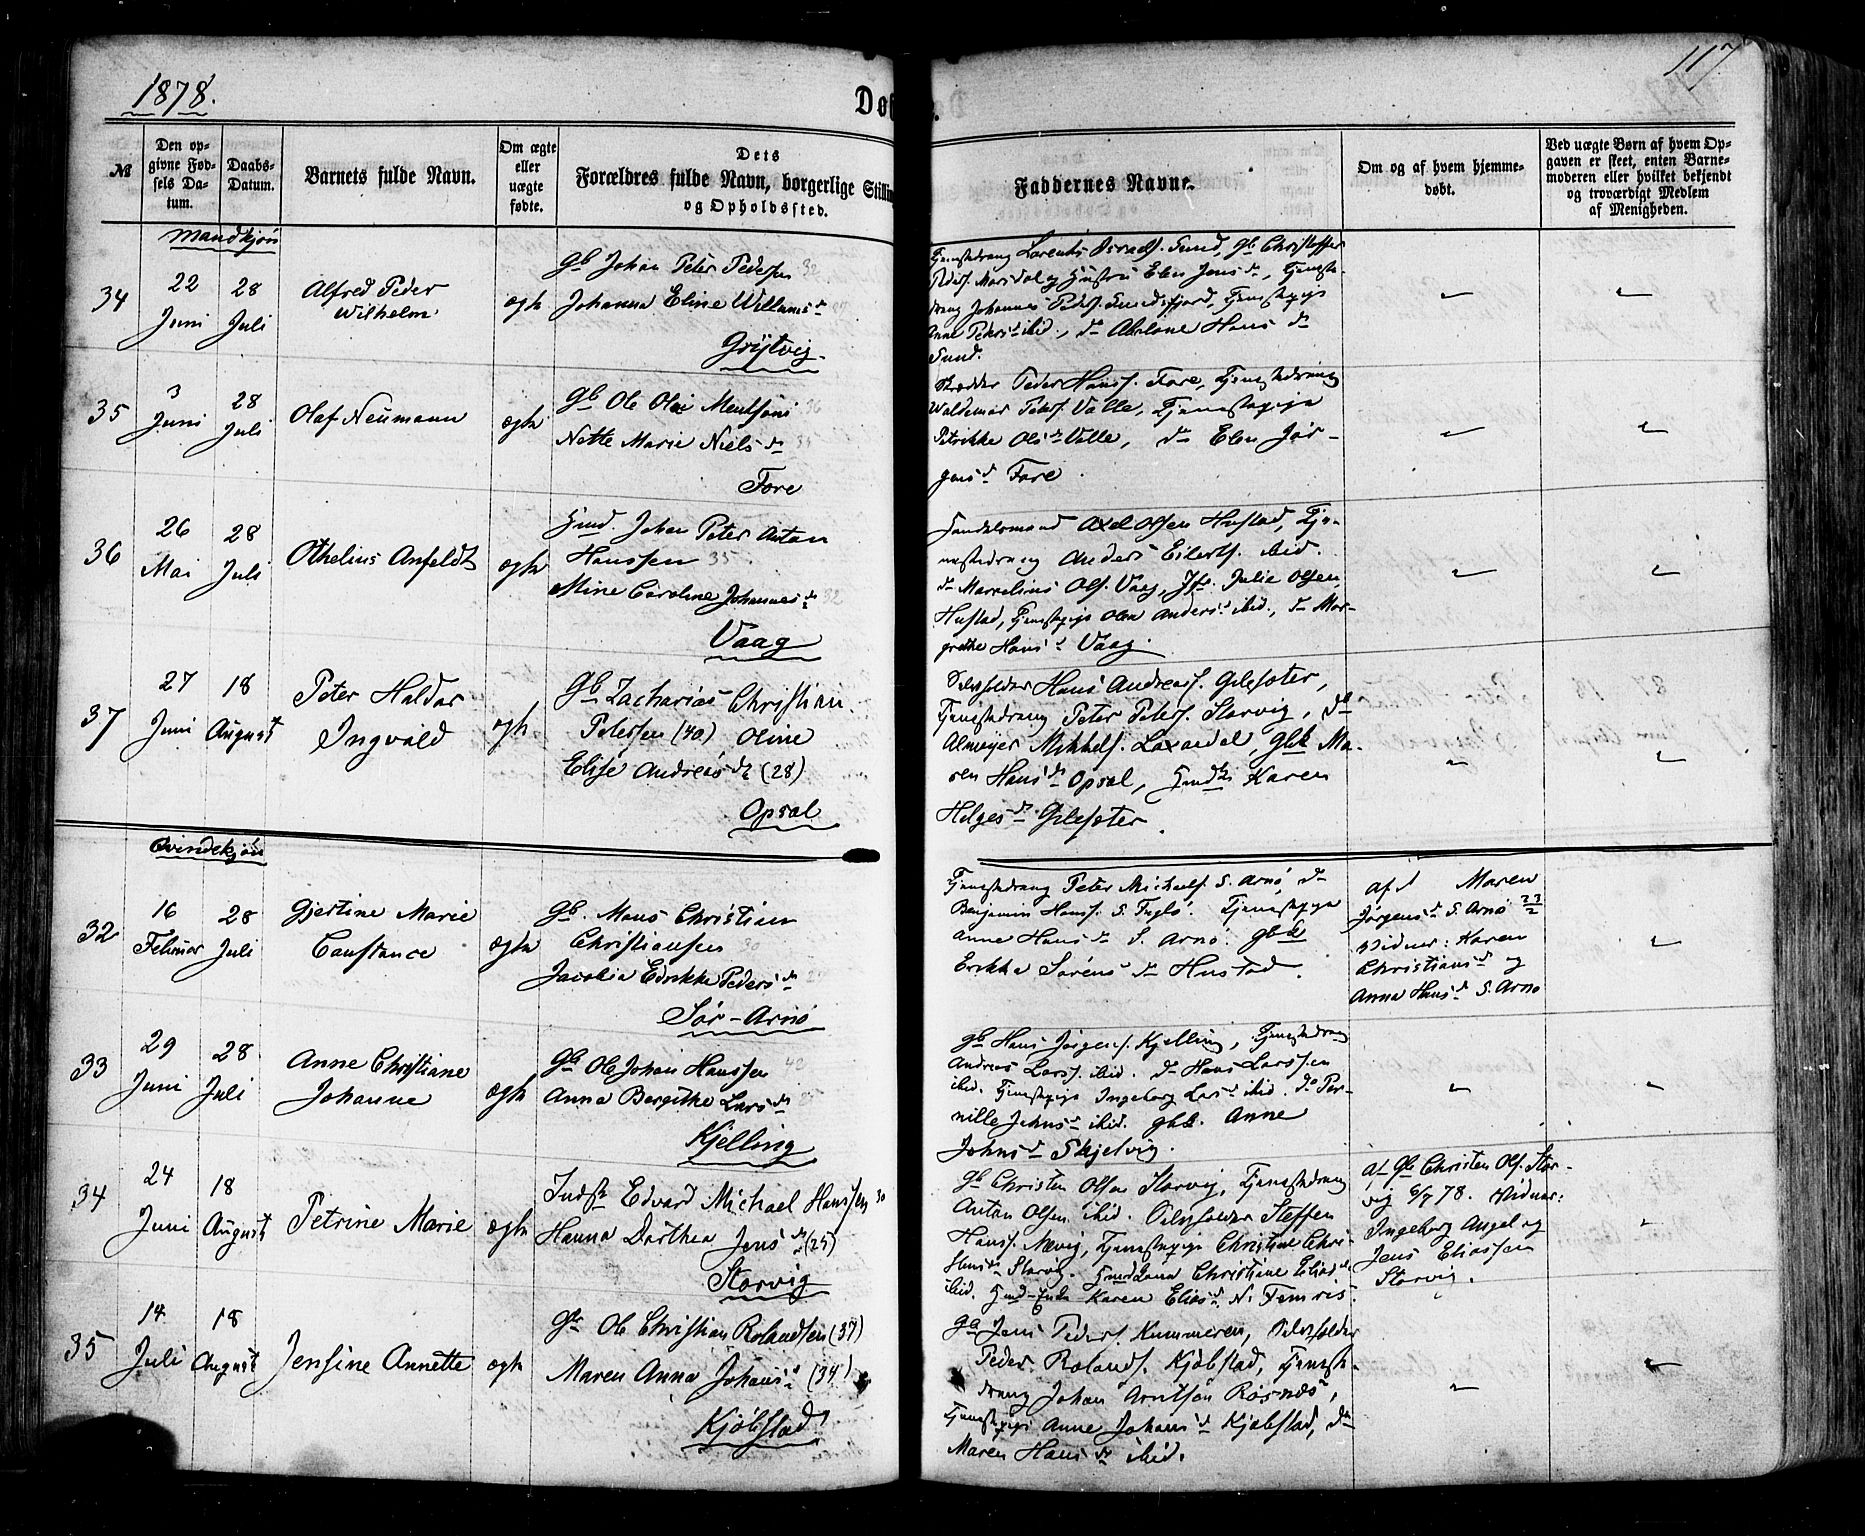 1878.
117
Døb
№
Den op-
givne Fød-
sels Da-
tum.
Daabs-
Datum.
Barnets fulde Navn.
Om ægte
eller
uægte
fødte.
Dets
Forældres fulde Navn, borgerlige Stillin
og Opholdssted.
Faddernes Navne.
Om og af hvem hjemme-
døbt.
Ved uægte Børn af hvem Op-
gaven er skeet, enten Barne-
moderen eller hvilket bekjendt
og troværdigt Medlem
af Menigheden.
Mandkjøn
34
22
Juni
28
Juli
Alfred Peder
Wilhelm
ægte
Gb Johan Peter Pedersen 32
Johanna Eline Willums d
Grytvig
Tjenestedrang Lorents Israels. Sund, Gb Christoffer
Peders. Marsdal og Hustru Elen Jens d, Tjeneste-
drang Johannes Peders. Sundsfjord, Tjenestepige
Anne Peders d ibid., do Abelone Hans d
Sund.
35
3
Juni
28
Juli
Olaf Neumann
ægte
Gb Ole Olai Mentsøni 36
Nette Marie Niels d
Fore
Skrædder Peder Hanss. Fore, Tjenestedrang
Waldemar Peters. Valle, Tjenestepige
Petrikke Ols d Valle, do Elen Jør-
gens d Fore.
36
26
Mai
28
Juli
Othelius Anfeldt
ægte
Gmd. Johan Peter Anton
Hanssen 35.
Mine Caroline Johannes d 32
Vaag
Handelsmand Axel Olsen Hustad, Tje-
nestedrang Anders Eilerts. ibid.
do Marselius Ols. Vaag, Jfr. Julie Olsen
Hustad, Tjenestepige Olea Anders d ibid., do Mar-
grethe Hans d Vaag
37
27
Juni
18
August
Peter Haldor
Ingvald
ægte
Gb Zacharias Christian
Petersen (40) Oline
Elise Andreas d (28)
Opsal
Selvholder Hans Andreass. Gilesæter,
Tjenestedrang Peter Peters. Storvig, do
Almejer Mikkels. Laxaedel, Gbk Ma-
ren Hans d Opsal, Gmdk Karen
Helges d Gilesæter.
Qvindekjøn
32
16
Februar
28
Juli
Gjertine Marie
Constance
ægte
Gb. Mons Christian
Christiansen 30
Jacobia Edrikke Peders d
Sør-Arnø
Tjenestedrang Peter Michaels. S. Arnø, do
Benjamin Hanss. S. Fuglø. Tjenestepige
Anne Hans d S. Arnø. Gbk
Erikka Sørens d Hustad.
af Maren
Jørgens d S. Arnø 23/2
Vidner: Karen
Christians d og
Anna Hans d S. Arnø
33
29
Juni
28
Juli
Anne Christiane
Johanne
ægte
Gb Ole Johan Hanssen 42
Anna Bergitha Lars d
Kjelling
Gb Hans Jørgens. Kjelling, Tjenestedrang
Andreas Larss. ibid. do Hans Larssen
ibid. Tjenestepige Ingeborg Lars d ibid. do Per-
nille Johns d ibid. Gbk. Anne
Johns d Skjelvig.
34
24
Juni
18
August
Petrine Marie
ægte
Indst Edvard Michael Hanssen 30
Hanna Dorthea Jens d (25)
Storvig
Gb Christen Olsen Storvig, Tjenestedrang
Anton Olsen ibid. Selvholder Steffen
Hanss. Nævig, Tjenestepige Christine Chri-
stens d Storvig. Gmdkona Christiane Elias d
ibid. Gmd-Enke Karen Elias d N. Femris.
af Gb Christen Ols. Stor-
vig 6/7 78. Vidner:
Ingeborg Angel og
Jens Eliassen
Storvig.
35
14
Juli
18
August
Jensine Annette
ægte
Gb Ole Christian Rolandsen (37)
Maren Anna Johans d (34)
Kjøbstad
Gb Jens Peders. Kummeren, Selvholder
Peder Rolands. Kjøbstad, Tjeneste-
drang Johan Arntsøn Røsnæs,
Tjenestepige Anne Johans d Kjøbstad, do
Maren Hans d ibid.